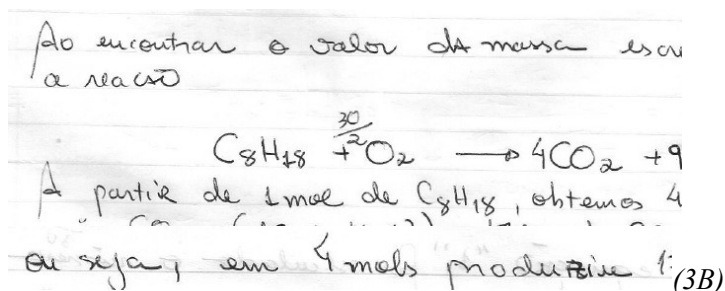 Ao encontrar o valor da massa escr
a reacão
C8H18 + 30/2 O2 → 4CO2 + 9
A partir de 1 mol de C8H18, obtemos 4
ou seja, em 4 mols produzive 1
(3B)